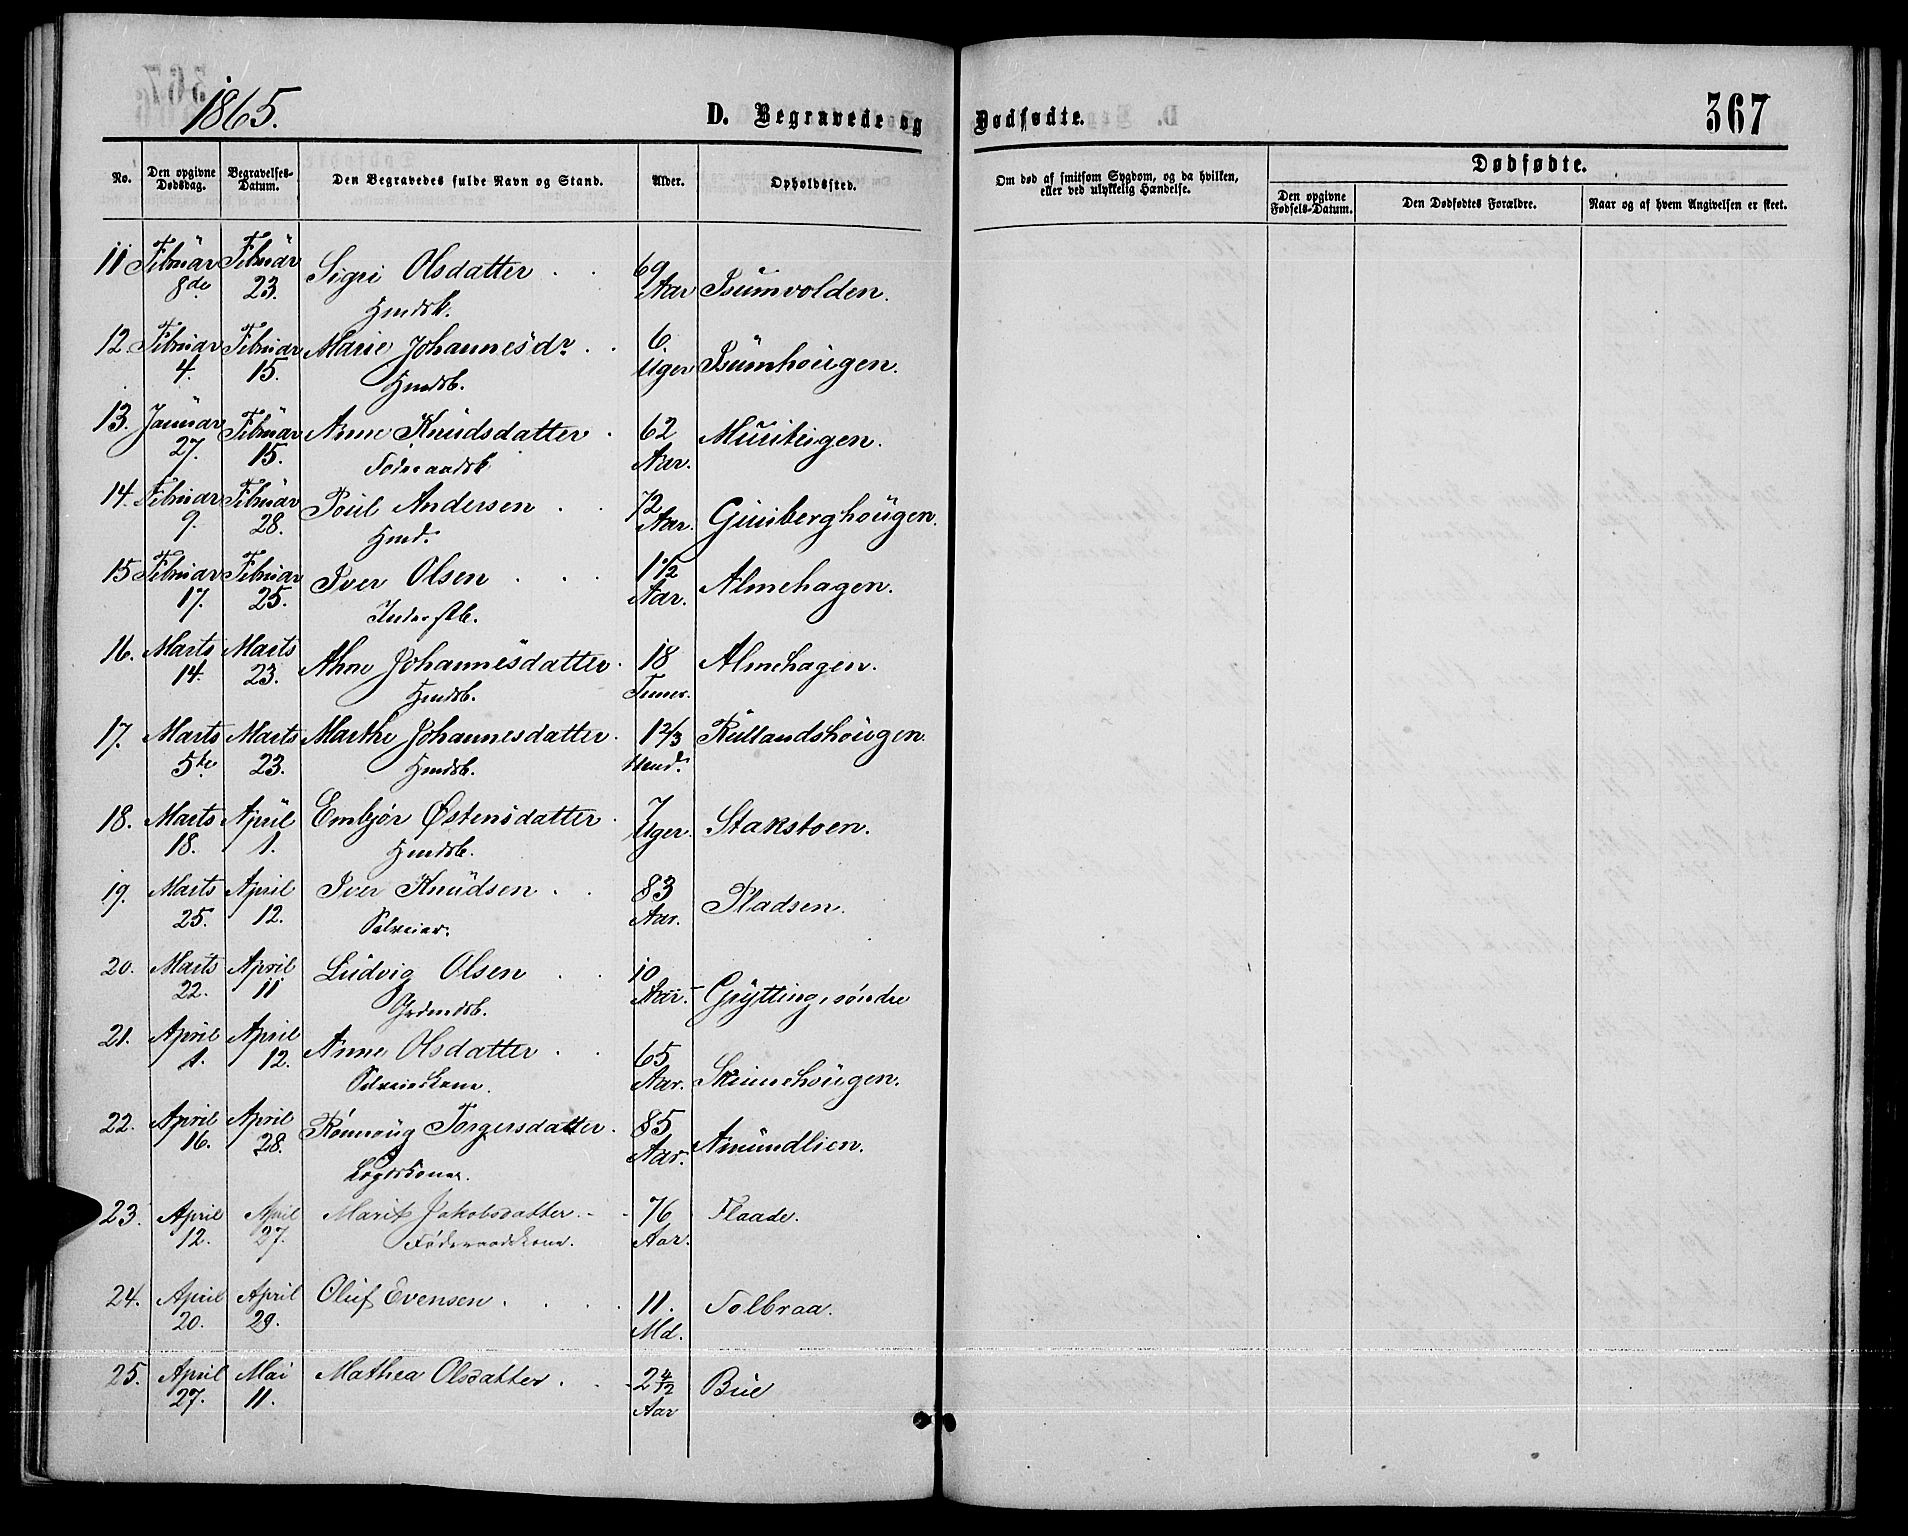 1865.
D. Begravede og Dødfødte.
367
No.
Den opgivne Dødsdag.
Begravelses-Datum.
Den Begravedes fulde Navn og Stand.
Alder.
Opholdssted.
Om død af smitsom Sygdom, og da hvilken, eller ved ulykkelig Hændelse.
Dødfødte.
Den opgivne Fødsels-Datum.
Den Dødfødtes Forældre.
Naar og af hvem Angivelsen er skeet.
11 Februar Februar Sigri Olsdatter . . 69
8de 23. Aar Isumvolden.
12. Februar Februar Marie Johannesdr . . 6.
4. 15. Hmdsb. Uger Isumhougen.
13. Januar Februar Anne Knudsdatter . 62
27. 15. Aar.
14. Februar Februar Poul Andersen . . 72
9. 28. Hmd. Aar.
15 Februar Februar Iver Olsen . . . 1 1/2 Almehagen.
17. 25. Aar.
16. Marts Marts Johannesdatter . 18 Almehagen.
14. 23. Hmdsb. Timer.
17. Marts Marts Marthe Johannesdatter . 1 2/3 Rullandshougen.
5te 23. Hmdsb.
18. Marts April Embjør Østensdatter . 7 Stakstoen.
18. 1. Hmdsb. Uger.
19. Marts April Iver Knudsen . . 83 Pladsen.
25. 12. Selveier. Aar.
20. Marts April Ludvig Olsen . . 10
22. 11 Grdmdsb. Aar. Grytting, søndre
21. April April Anne Olsdatter . . 65
1. 12. Selveierkone. Aar.
22. April April Rønnoug Torgersdatter . 85
16. 28. Lægdskone. Aar. Amundlien.
23. April April Marit Jakobsdatter . - - 76 Flaade.
12. 27. Føderaadskone. Aar.
24. April April Oluf Evensen . . . . . 11. Tolbraa.
20. 29. Md.
25. April Mai Mathea Olsdatter . . 2 4/12 Bue
27. 11. Aar